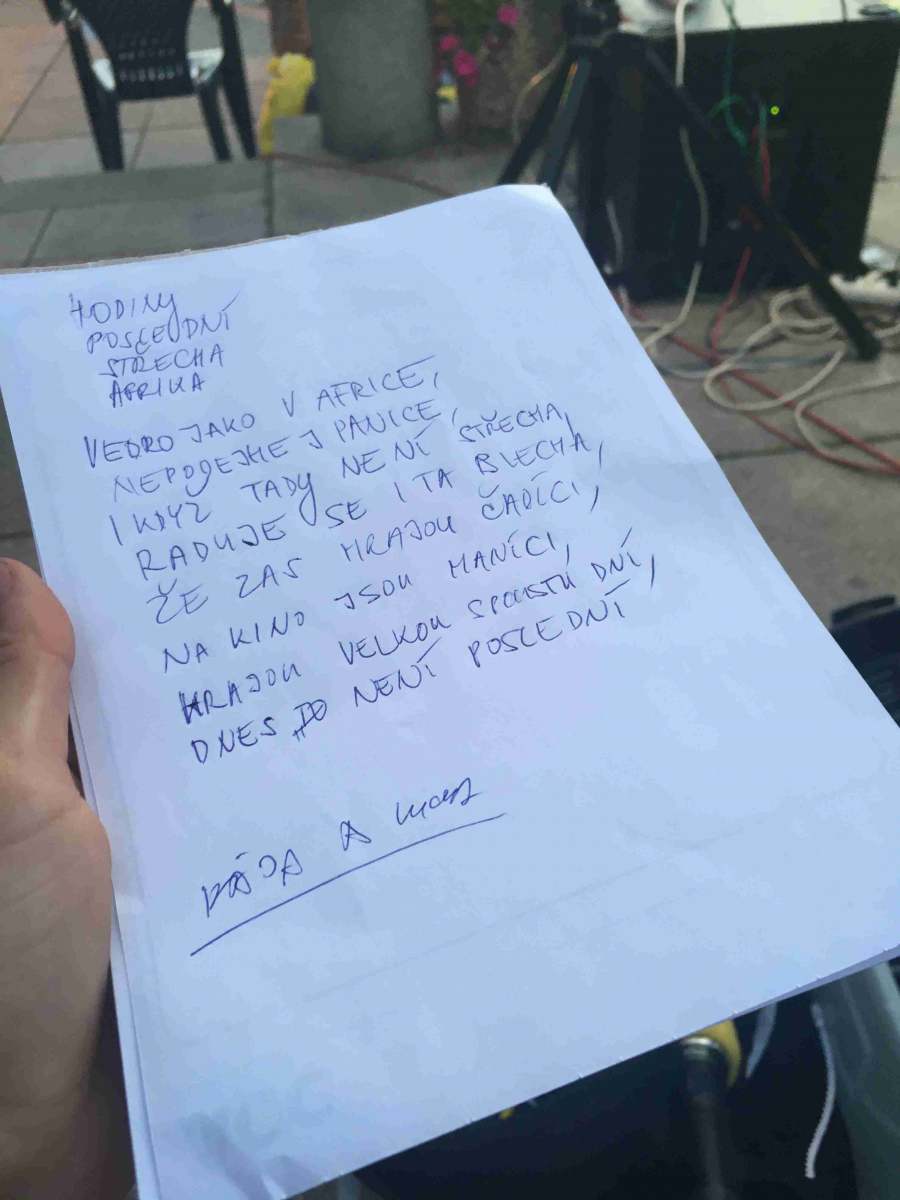 HODINY
POSLEDNÍ
STŘECHA
AFRIKA
VEDRO JAKO V AFRICE,
NEPODEJME J PANICE,
I KDYZ TADY NENÍ STŘECHA,
RADUJE SE I TA BLECHA,
ŽE ZAS HRAJOU ČADÍCI,
NA KINO JSOU MANÍCI,
HRAJOU VELKOU SPOUSTU DNÍ,
DNES TO NENÍ POSLEDNÍ
PÁJA A